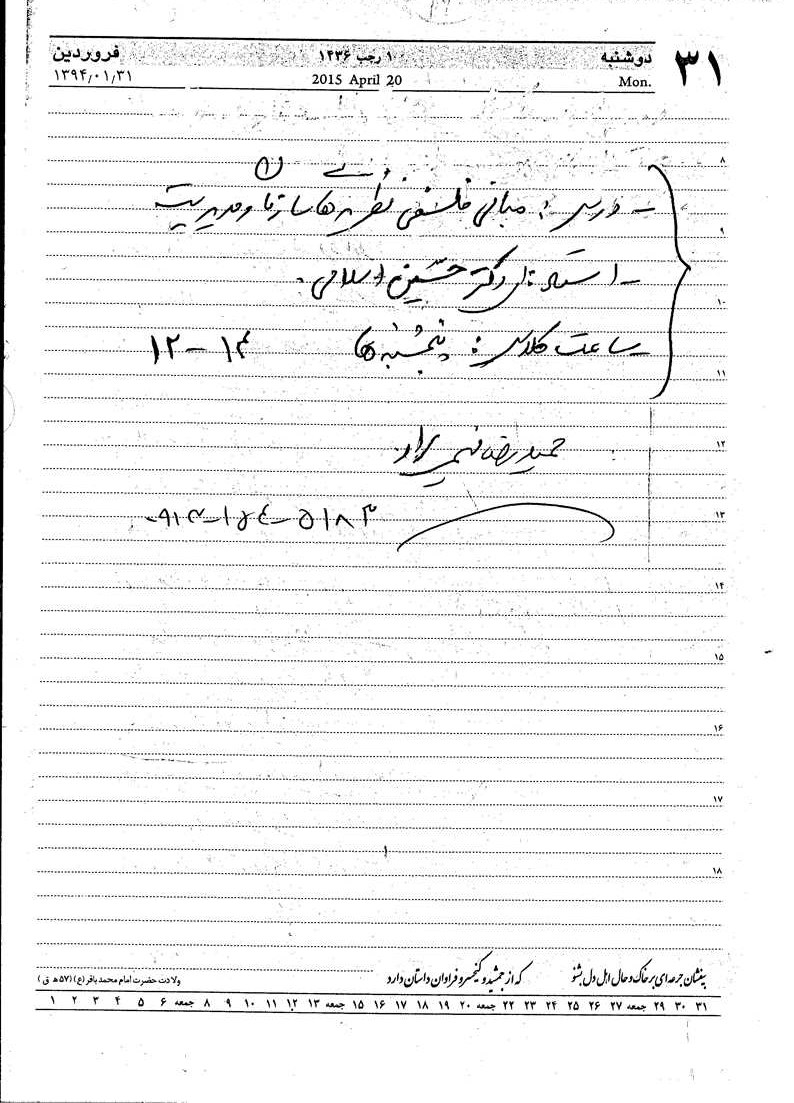 ۳۱ دوشنبه ۱۰ رجب ۱۴۳۶ فروردین
Mon. 2015 April 20 ۱۳۹۴/۰۱/۳۱
۸
ـ درس : مبانی فلسفی نظریه های سازمان و مدیریت
۹
ـ استاد : دکتر حسین اسلامی .
۱۰
ـ ساعت کلاس : پنجشنبه ها ۱۴ - ۱۲
۱۱
۱۲
حمیدرضا
۱۳
۱۴
۱۵
۱۶
۱۷
۱۸
بیفشان جرعه‌ای بر خاک و حال اهل دل بشنو که از جمشید و کیخسرو فراوان داستان دارد ولادت حضرت امام محمد باقر (ع) (۵۷ ه‍ ق)
۱ ۲ ۳ ۴ ۵ ۶ جمعه ۸ ۹ ۱۰ ۱۱ ۱۲ ۱۳ جمعه ۱۵ ۱۶ ۱۷ ۱۸ ۱۹ ۲۰ جمعه ۲۲ ۲۳ ۲۴ ۲۵ ۲۶ ۲۷ جمعه ۲۹ ۳۰ ۳۱